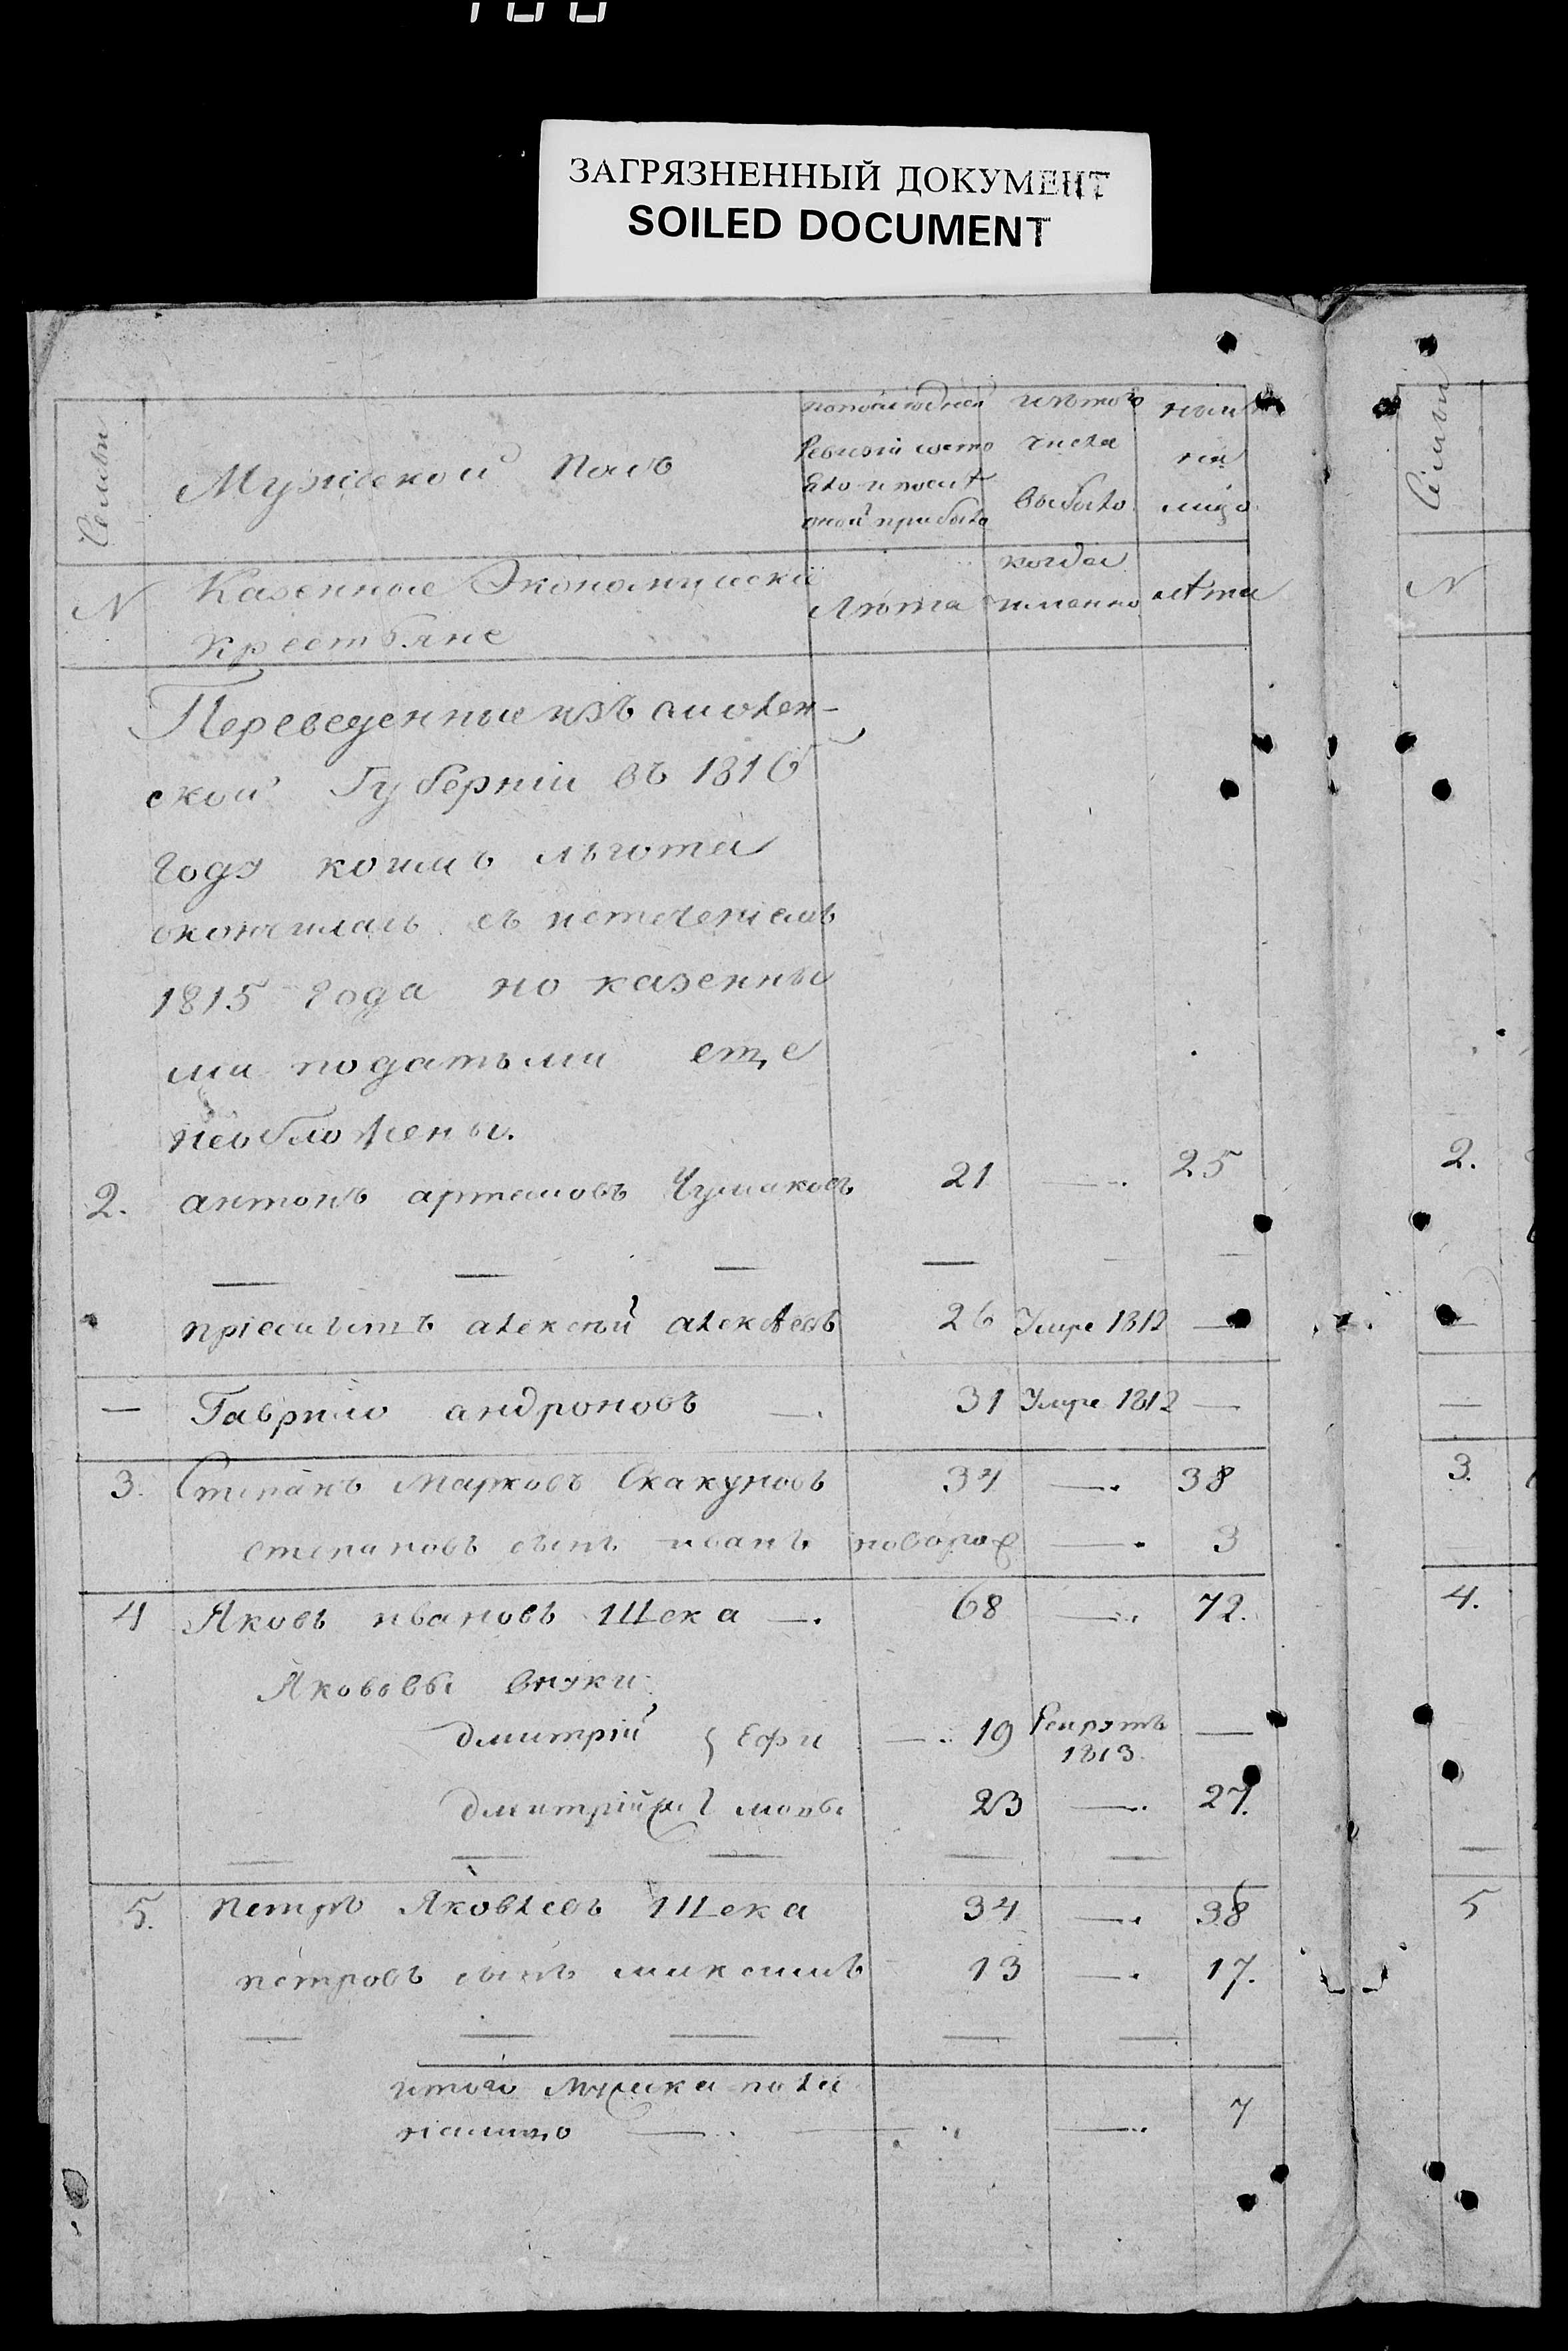 ЗАГРЯЗНЕННЫЙ ДОКУМЕНТ
SOILED DOCUMENT
Семьи
Мужескои Полъ
попоследней
Ревизіи состо
яло и послѣ
оной прибыло
изътого
числа
выбыло
ныне
на
лицо
Семьи
N
Казенные Экономическіе
крестьяне
Лѣта
когда
имянно
лѣта
N
Переведенные изъ смолен-
ской Губерніи въ 1810
году коимъ льгота
окончилась съ истеченіемъ
1815 года но казенны
ми податьми еще
необложены.
2. антонъ артемовъ Чумаковъ 21 —. 25 2.
— — — — — —
пріемышъ алексѣй алексѣевъ 26 Умре 1812 — —
— Гаврило андроновъ —. 31 Умре 1812 — —
3. Степанъ Марковъ Скакуновъ 34 —. 38 3.
степановъ сынъ иванъ новорож —. 3
4 Яковъ ивановъ Щека —. 68 —. 72. 4.
Яковавы внуки
дмитрій } Ефи —. 19 Рекрутъ 1813. —
дмитрій же } мовы 23 —. 27.
— — — — — —
5. петръ Яковлевъ Щека 34 —. 38 5
петровъ сынъ максимъ 13 —. 17.
— — — — —
итого Мужска пола
налицо —. —. —. 7